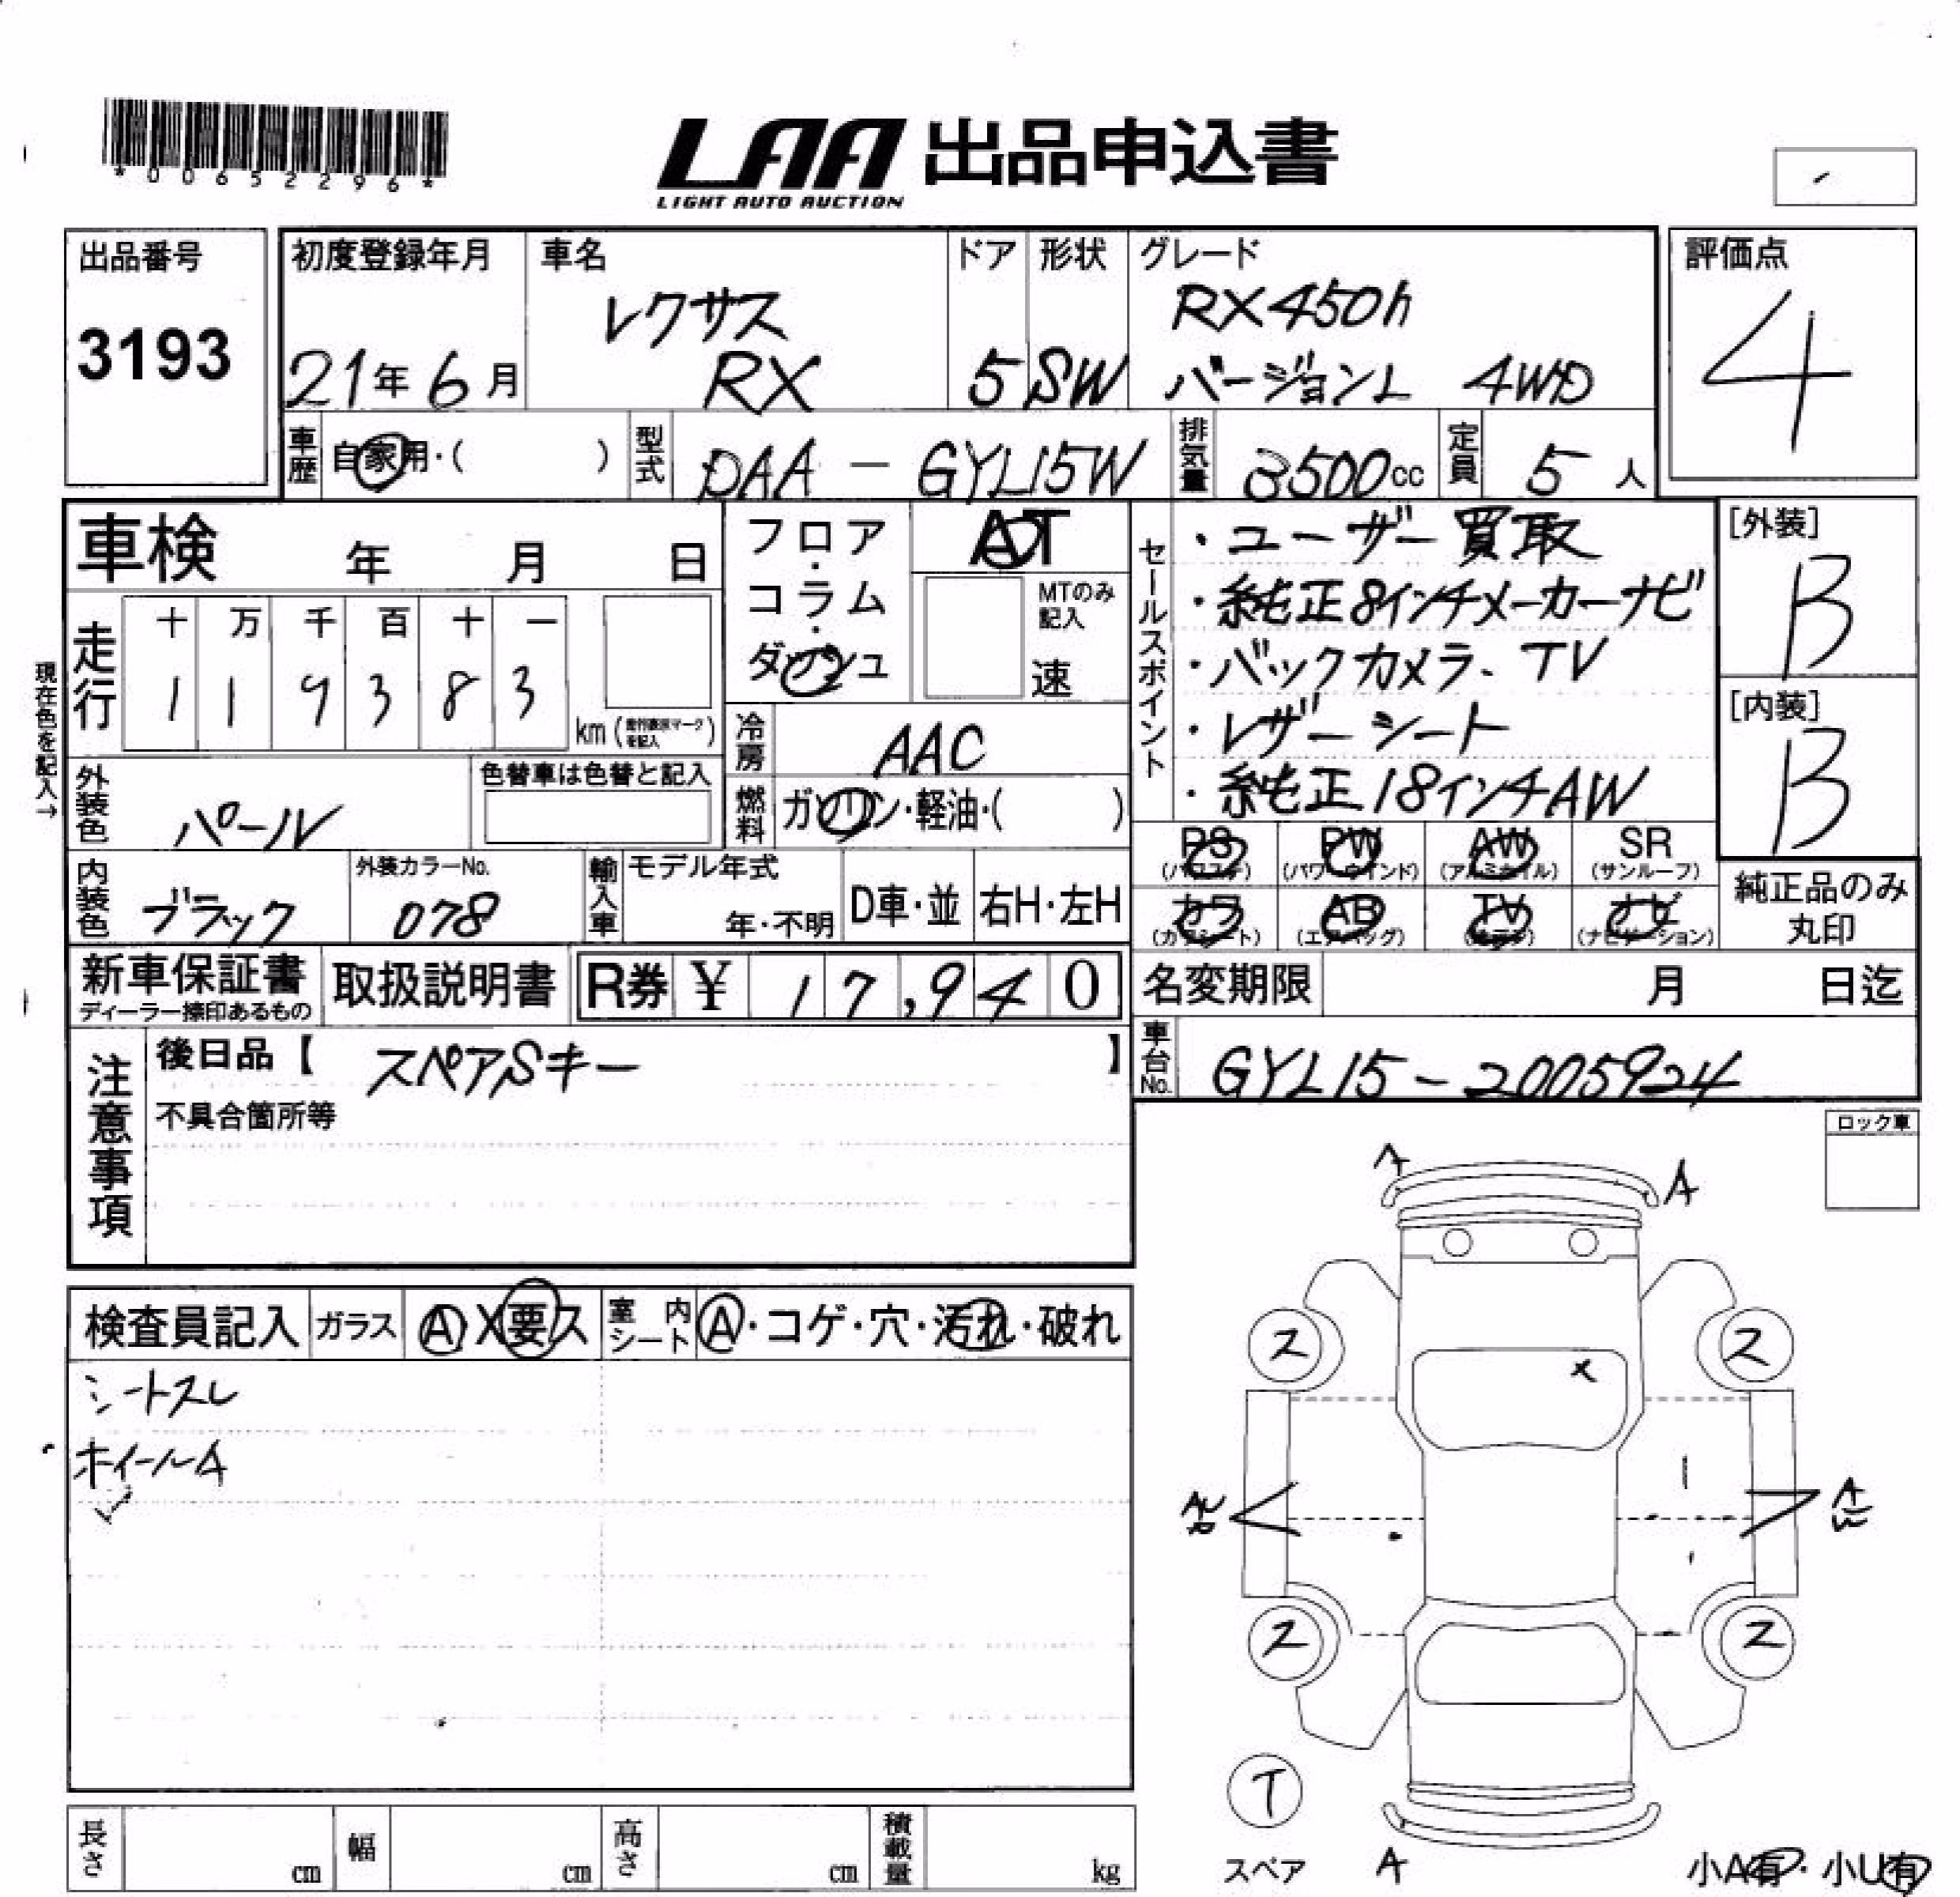 *00652296*
LAA 出品申込書
LIGHT AUTO AUCTION
出品番号
3193
初度登録年月
21年6月
車名
レクサス
RX
ドア
5
形状
SW
グレード
RX450h
バージョンL 4WD
評価点
4
車歴 自家用・( )
型式 DAA-GYL15W
排気量 3500cc
定員 5人
車検 年 月 日
現在色を記入→
走行
十 万 千 百 十 一
1 1 9 3 8 3
km(走行表示マークを記入)
フロア・コラム・ダッシュ
AT
MTのみ記入
速
冷房 AAC
燃料 ガソリン・軽油・( )
セールスポイント
・ユーザー買取
・純正8インチメーカーナビ
・バックカメラ、TV
・レザーシート
・純正18インチAW
[外装]
B
[内装]
B
外装色 パール
色替車は色替と記入
内装色 ブラック
外装カラーNo.
078
輸入車
モデル年式
年・不明
D車・並
右H・左H
PS (パワステ)
PW (パワーウインド)
AW (アルミホイル)
SR (サンルーフ)
カワ (カワシート)
AB (エアバッグ)
TV
ナビ (ナビゲーション)
純正品のみ丸印
新車保証書
ディーラー捺印あるもの
取扱説明書
R券 ¥ 17,940
名変期限 月 日迄
車台No. GYL15-2005924
注意事項
後日品【 スペアSキー 】
不具合箇所等
ロック車
検査員記入
ガラス A・X要ス
室内シート A・コゲ・穴・汚れ・破れ
シートスレ
ホイールA
A
A
ス
ス
X
ス
ス
T
スペア
A
小A有・小U有
長さ cm
幅 cm
高さ cm
積載量 kg